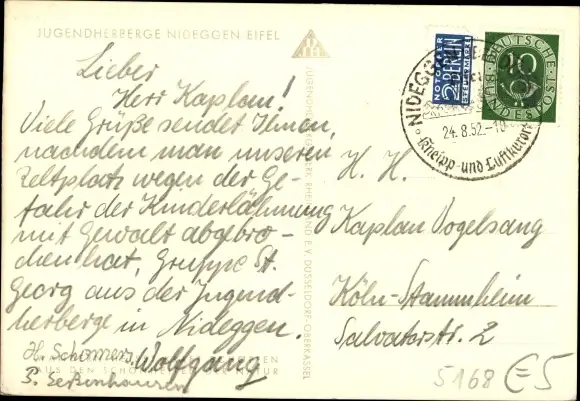 JUGENDHERBERGE NIDEGGEN EIFEL
Lieber
Herr Kaplan!
Viele Grüße sendet Ihnen,
nachdem man unseren
Zeltplatz wegen der Ge-
fahr der Kinderlähmung
mit Gewalt abgebro-
chen hat, Gruppe St.
Georg aus der Jugend-
herberge in Nideggen.
Wolfgang
AUS DEN NATUR
DÜSSELDORF-OBERKASSEL
NOTOPFER
2 BERLIN
STEUERMARKE
DEUTSCHE
BUNDESPOST
NIDEGGEN
24.8.52.-10
Kneipp- und Luftkurort
H. H.
Kaplan Vogelsang
Köln-Stammheim
Salvatorstr. 2
5168 E5